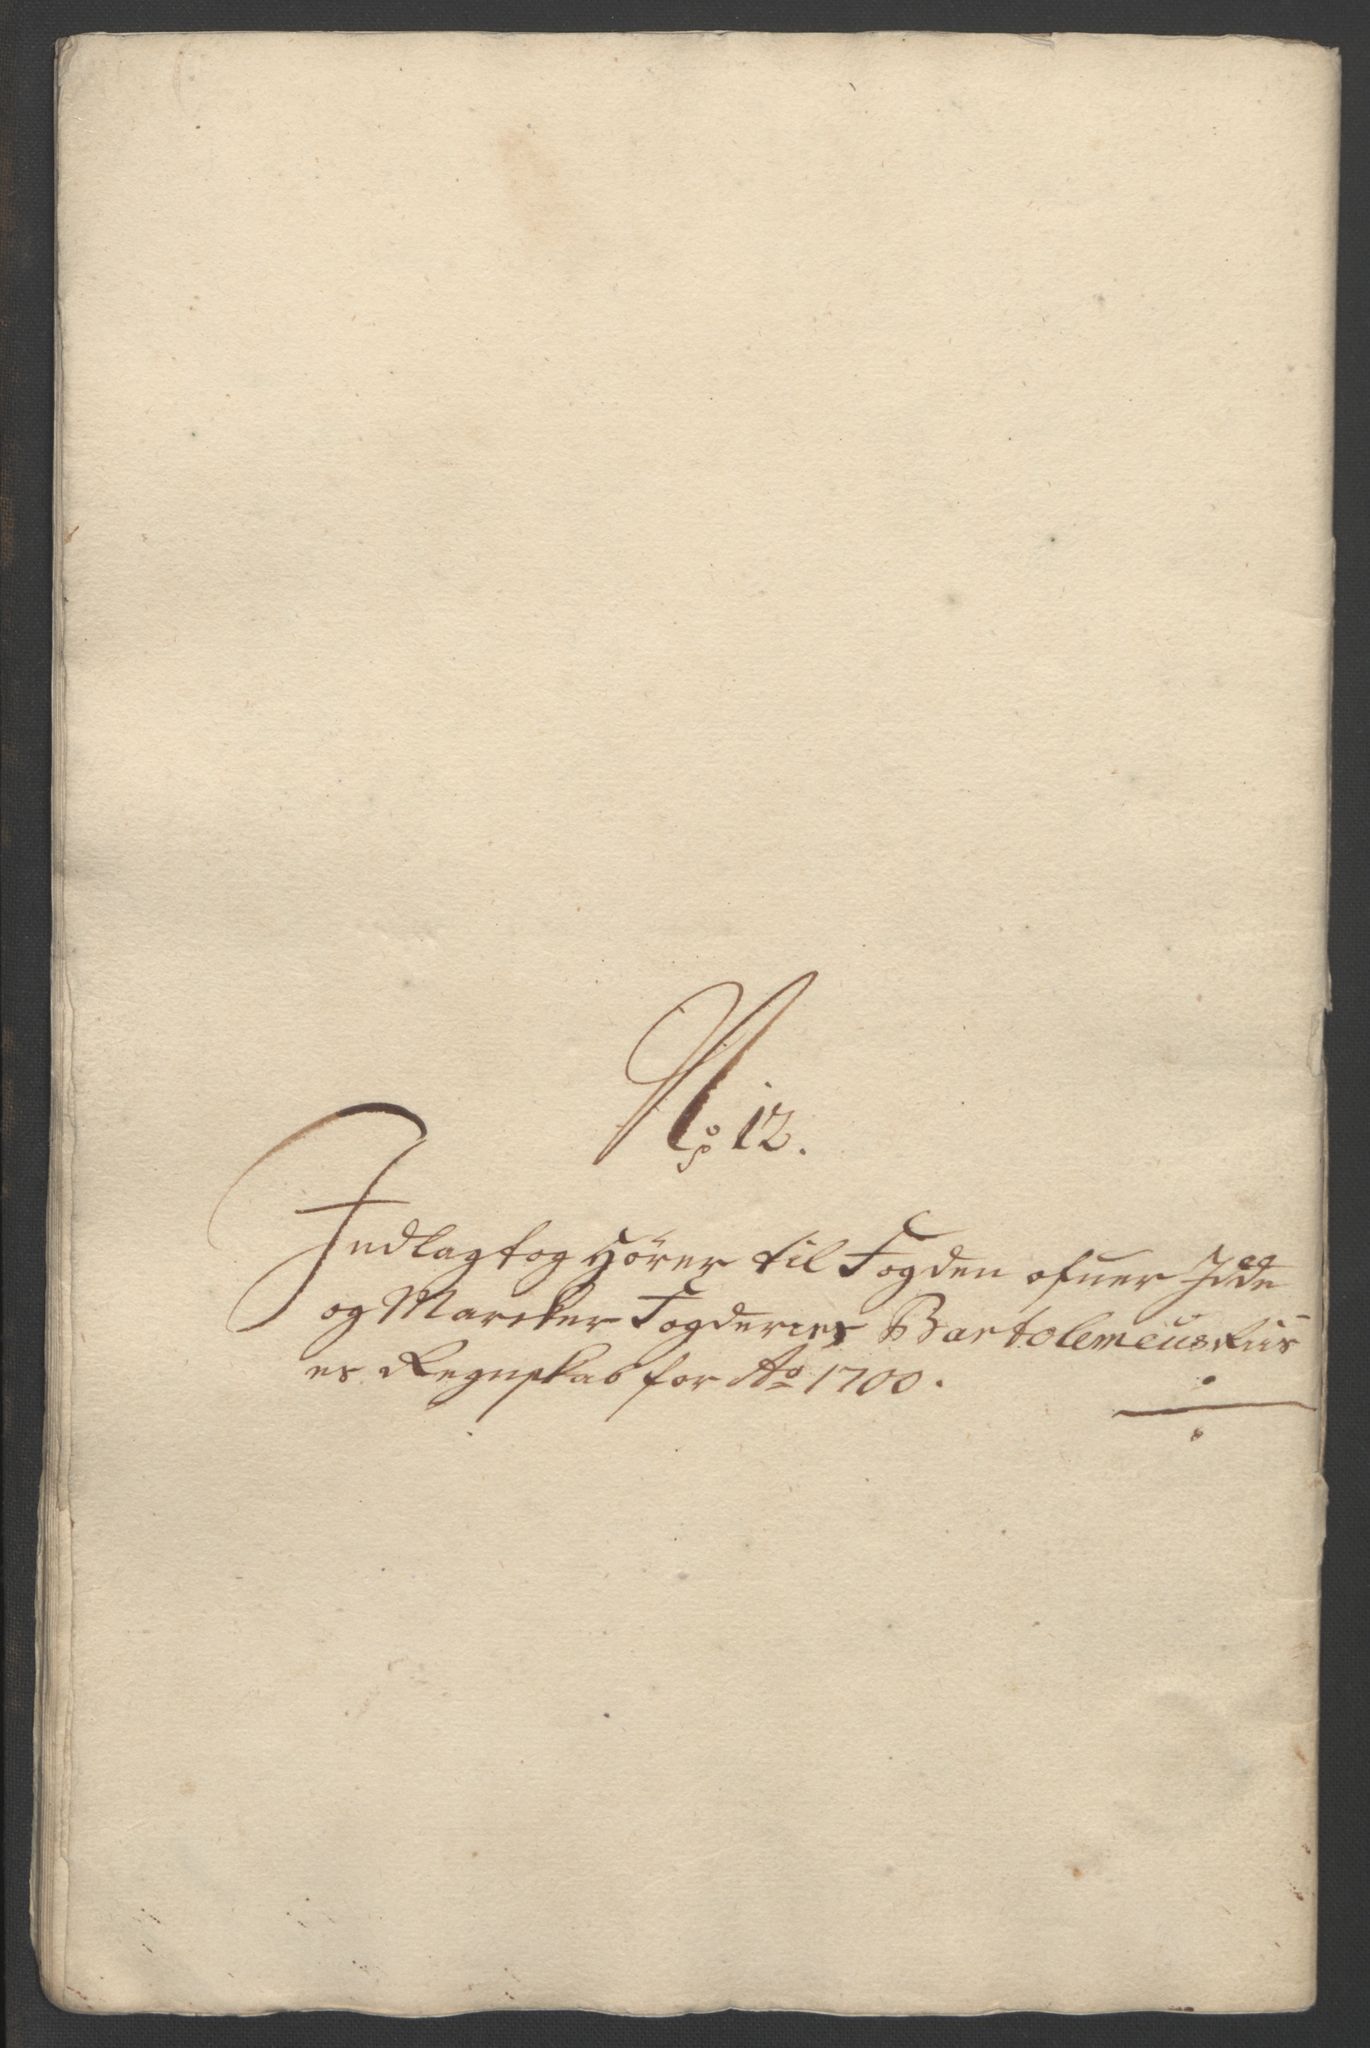 No 12.
Indlagt og Hörer til Fogden ofuer Idde
og Marcker Fogderier Bartolemeus Riis
es Regnskab for Ao 1700.